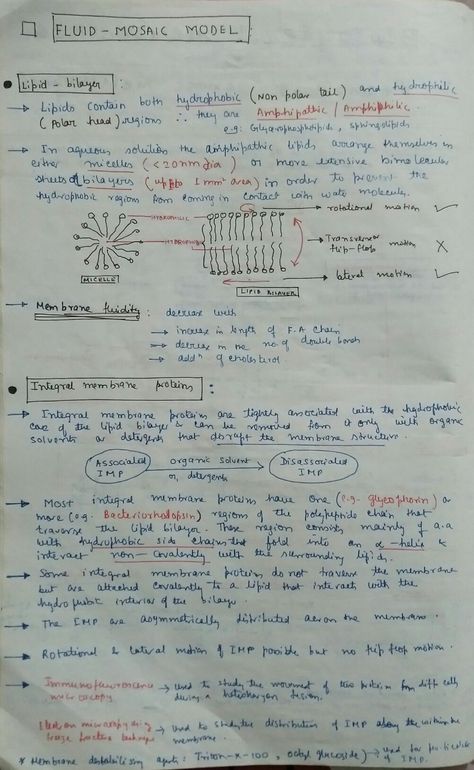 FLUID - MOSAIC MODEL
Lipid - bilayer :
→ Lipids contain both hydrophobic (Non polar tail) and hydrophilic
(Polar head) regions ∴ they are Amphipathic / Amphiphilic.
e.g: Glycerophospholipids, Sphingolipids
→ In aqueous solutions the amphipathic lipids arrange themselves in
either micelles (<20nm dia) or more extensive bimolecular
sheets of bilayers (upto 1 mm² area) in order to prevent the
hydrophobic regions from coming in contact with water molecule.
→ rotational motion ✓
HYDROPHILIC
→ Transverse motion X
flip-flop
HYDROPHOBIC
→ lateral motion ✓
MICELLE
LIPID BILAYER
→ Membrane fluidity : decrease with
→ increase in length of F.A chain
→ decrease in the no. of double bonds
→ addⁿ of cholesterol
Integral membrane proteins :
→ Integral membrane proteins are tightly associated with the hydrophobic
core of the lipid bilayer & can be removed from it only with organic
solvents or detergents that disrupt the membrane structure.
Associated IMP
organic solvent
or, detergents
Dissassociated IMP
→ Most integral membrane proteins have one (e.g. glycophorin) or
more (e.g. Bacteriorhodopsin) regions of the polypeptide chain that
traverse the lipid bilayer. These region consists mainly of a.a
with hydrophobic side chains that fold into an α-helix &
interact non-covalently with the surrounding lipids.
→ Some integral membrane proteins do not traverse the membrane
but are attached covalently to a lipid that interacts with the
hydrophobic interior of the bilayer.
→ The IMP are asymmetrically distributed across the membrane.
→ Rotational & lateral motion of IMP possible but no flip flop motion.
→ Immunofluorescence microscopy → used to study the movement of two proteins from diff cells
during a heterokaryon fusion.
Electron microscopy using freeze fracture technique → used to study the distribution of IMP along the within the
membrane.
* Membrane destabilising agents : Triton-X-100, octyl glucoside) → used for
of IMP.